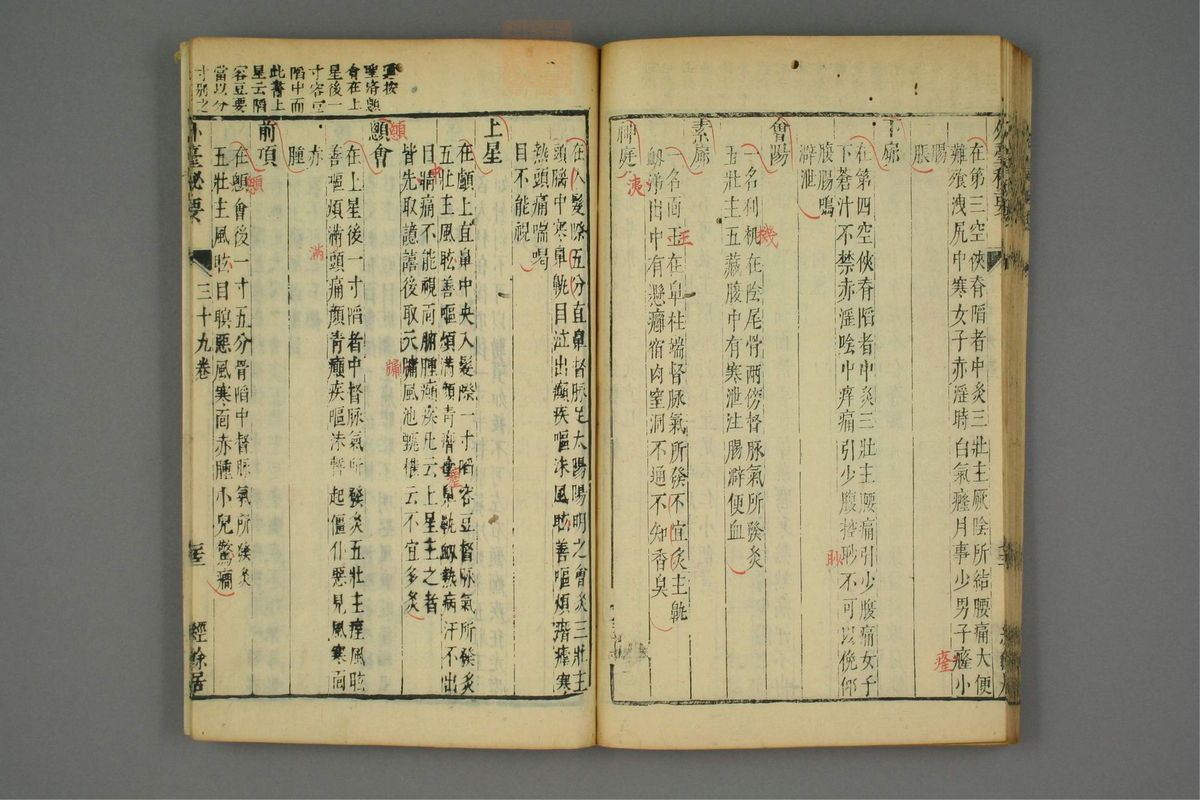 在第三空俠脊䧟者中灸三壯主厥陰所結腰痛大便
難飧洩尻中寒女子赤淫時白氣癃月事少男子癃小
腸
脹
下窌
在第四空俠脊䧟者中灸三壯主腰痛引少腹痛女子
下蒼汁不禁赤淫陰中痒痛引少腹控䏚不可以俛仰
腹腸鳴
澼泄
會陽
一名利机在陰尾骨兩傍督脉氣所發灸
五壯主五藏腹中有寒泄注腸澼便血
素窌
一名面王在鼻柱端督脉氣所發不宜灸主鼽
衂涕出中有懸癰宿肉窒洞不通不知香臭
神庭
在入髮際五分直鼻督脉足太陽陽明之會灸三壯主
頭腦中寒鼻鼽目泣出癲疾嘔沫風眩善嘔煩滿瘧寒
熱頭痛喘喝
目不能視
上星
在顱上直鼻中央入髮際一寸䧟容豆督脉氣所發灸
五壯主風眩善嘔煩滿顏青
目睛痛不能視面胕腫癲疾凡云上星主之者
皆先取譩譆後取天牖風池甄權云不宜多灸
顖會
在上星後一寸䧟者中督脉氣所發灸五壯主痓風眩
善嘔煩滿頭痛顏青癲疾嘔沫暫起僵仆惡見風寒面
赤
腫
前頂
在顖會後一寸五分骨䧟中督脉氣所發灸
五壯主風眩目瞑惡風寒面赤腫小兒驚癇
外臺秘要
三十九卷
經餘居
聖濟顖
會在上
星後一
寸容豆
䧟中而
此書上
星云䧟
容豆要
當以分
寸別之